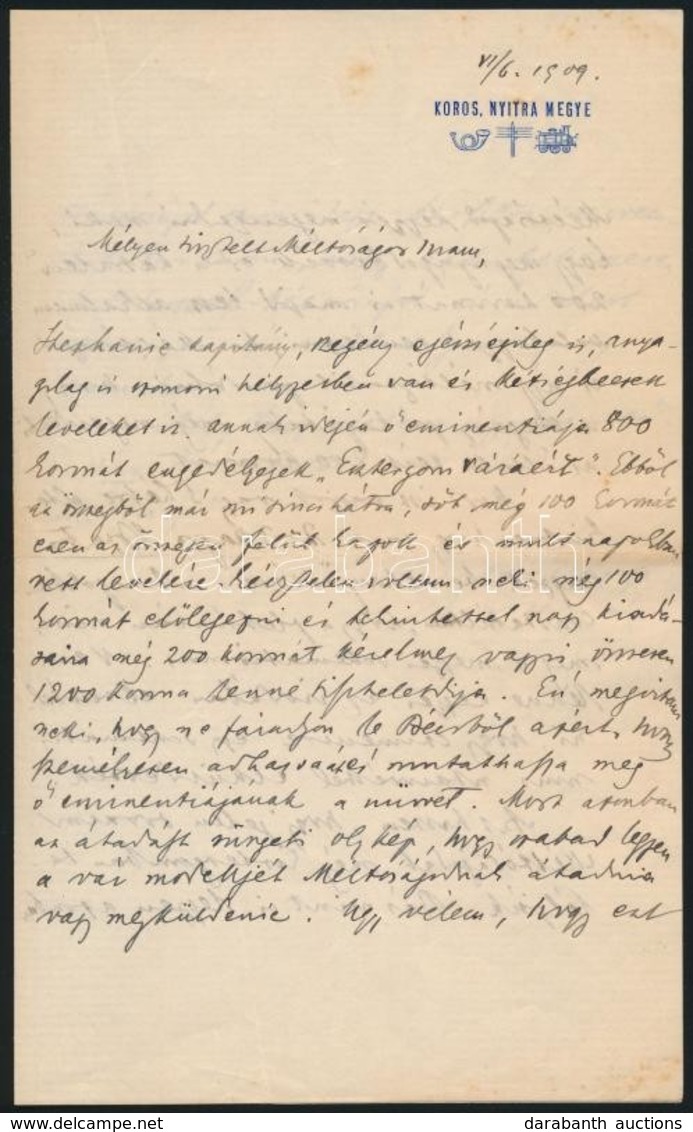 VI/6. 1909.
KOROS, NYITRA MEGYE
Mélyen tisztelt Méltóságos Uram,
Stephanie kapitány, szegény egészségileg is, anya-
gilag is szomorú helyzetben van és kétségbeesett
leveleket ir. annak idején ő eminentiája 800
koronát engedélyezett „Esztergom váráért". Ebből
az összegből már nincs hátra, sőt még 100 koronát
ezen az összegen felül kapott és mult napokban
vett levelére kénytelen voltam neki még 100
koronát előlegezni és tekintettel nagy kiadá-
saira még 200 koronát kérelmez vagyis összesen
1200 korona lenne tiszteletdija. Én megirtam
neki, hogy ne fáradjon le Bécsből azért, hogy
személyesen adhassa át és mutathassa meg
ő eminentiájának a művet. Most azonban
az átadást sürgeti olykép, hogy szabad legyen
a vár modelljét Méltóságodnak átadnia
vagy megküldenie. Ugy vélem, hogy ezt
darabanth
darabanth auctions